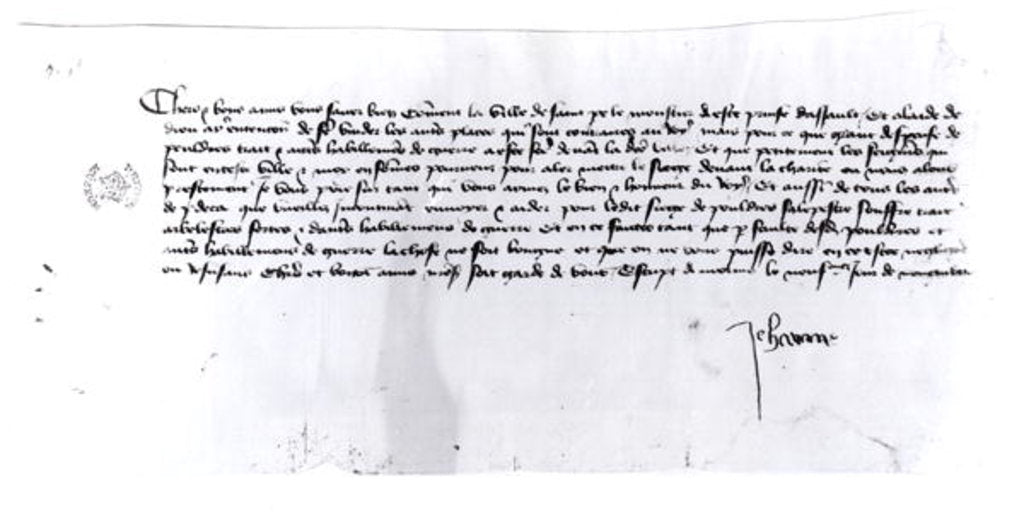 Chers et bons amis vous savez bien comment la ville de saint pere le moustier a este prinse dassault et a laide de
dieu ay entencion de fere vuider les autres places qui sont contraires au roy mais pour ce que grant despense de
pouldres trait et autres habillemens de guerre a este fete devant la dicte ville et que petitement les seigneurs qui
sont en ceste ville et moy en sommes pourveuz pour aler mectre le siege devant la charite ou nous alons
prestement je vous prie sur tant que vous aymez le bien et honneur du roy et aussi de tous les autres
de par deca que vueillez incontinant envoyer et aider pour ledit siege de pouldres salepestre souffre trait
arbelestres fortes et dautres habillemens de guerre Et en ce faictes tant que par faulte desdictes pouldres et
autres habillemens de guerre la chose ne soit longue et que on ne vous puisse dire en ce estre negligens
ou refusans Chiers et bons amis nostre sire soit garde de vous Escript a molins le neufviesme jour de novembre
Jehanne